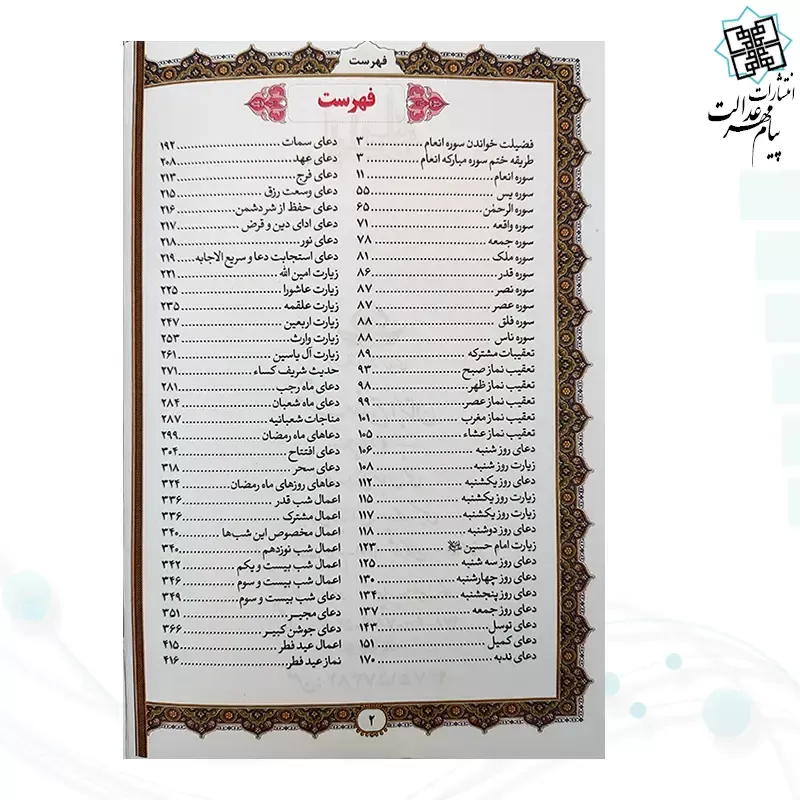 انتشارات
پیام مهر عدالت
فهرست
فهرست
فضیلت خواندن سوره انعام ............... ۳
طریقه ختم سوره مبارکه انعام ............ ۳
سوره انعام ............... ۱۱
سوره یس ............... ۵۵
سوره الرحمٰن ............... ۶۵
سوره واقعه ............... ۷۱
سوره جمعه ............... ۷۸
سوره ملک ............... ۸۱
سوره قدر ............... ۸۶
سوره نصر ............... ۸۷
سوره عصر ............... ۸۷
سوره فلق ............... ۸۸
سوره ناس ............... ۸۸
تعقیبات مشترکه ............... ۸۹
تعقیب نماز صبح ............... ۹۳
تعقیب نماز ظهر ............... ۹۸
تعقیب نماز عصر ............... ۹۹
تعقیب نماز مغرب ............... ۱۰۱
تعقیب نماز عشاء ............... ۱۰۵
دعای روز شنبه ............... ۱۰۶
زیارت روز شنبه ............... ۱۰۸
دعای روز یکشنبه ............... ۱۱۲
زیارت روز یکشنبه ............... ۱۱۵
زیارت روز یکشنبه ............... ۱۱۷
دعای روز دوشنبه ............... ۱۱۸
زیارت امام حسین ............... ۱۲۳
دعای روز سه شنبه ............... ۱۲۵
دعای روز چهارشنبه ............... ۱۳۰
دعای روز پنجشنبه ............... ۱۳۴
دعای روز جمعه ............... ۱۳۷
دعای توسل ............... ۱۴۳
دعای کمیل ............... ۱۵۱
دعای ندبه ............... ۱۷۰
دعای سمات ............... ۱۹۲
دعای عهد ............... ۲۰۸
دعای فرج ............... ۲۱۳
دعای وسعت رزق ............... ۲۱۵
دعای حفظ از شر دشمن ............... ۲۱۶
دعای ادای دین و قرض ............... ۲۱۷
دعای نور ............... ۲۱۸
دعای استجابت دعا و سریع الاجابه ..... ۲۱۹
زیارت امین الله ............... ۲۲۱
زیارت عاشورا ............... ۲۲۵
زیارت علقمه ............... ۲۳۵
زیارت اربعین ............... ۲۴۷
زیارت وارث ............... ۲۵۳
زیارت آل یاسین ............... ۲۶۱
حدیث شریف کساء ............... ۲۷۱
دعای ماه رجب ............... ۲۸۱
دعای ماه شعبان ............... ۲۸۴
مناجات شعبانیه ............... ۲۸۷
دعاهای ماه رمضان ............... ۲۹۹
دعای افتتاح ............... ۳۰۴
دعای سحر ............... ۳۱۸
دعاهای روزهای ماه رمضان ............... ۳۲۴
اعمال شب قدر ............... ۳۳۶
اعمال مشترک ............... ۳۳۶
اعمال مخصوص این شب‌ها ............... ۳۴۰
اعمال شب نوزدهم ............... ۳۴۰
اعمال شب بیست و یکم ............... ۳۴۲
اعمال شب بیست و سوم ............... ۳۴۶
دعای شب بیست و سوم ............... ۳۴۹
دعای مجیر ............... ۳۵۱
دعای جوشن کبیر ............... ۳۶۶
اعمال عید فطر ............... ۴۱۵
نماز عید فطر ............... ۴۱۶
۲